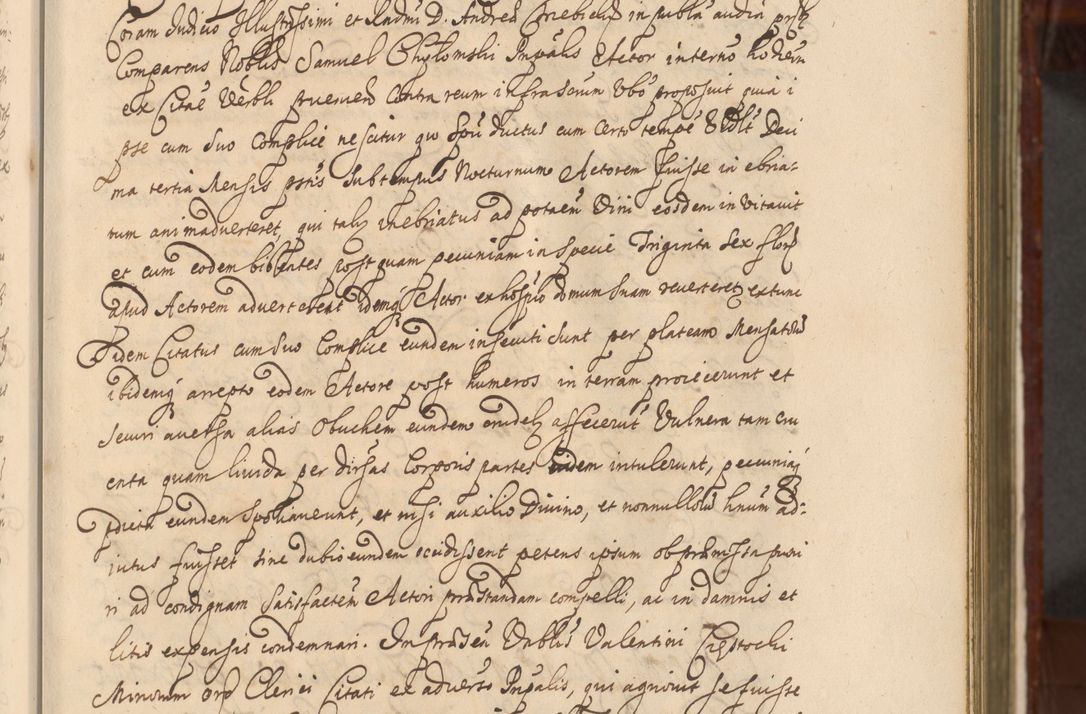 Coram Judicio Illustrissimi et Radmi D. Andreæ Trzebicki in publa audia prsti
Comparens Noblis Samuel Chylomski Inpalis Actor interno hodiern
ex Citãe Verbli prvenien Contra reum infrascrun Vbo proposuit quia i
pse cum suo Complice nescitur quo spũ ductus cum certo tempe Vẽlt Deci
ma tertia Mensis pstis sub tempus Nocturnum Actorem fuisse in ebria-
tum animadverteret, qui taliter inebriatus ad potaem Vini eosdem in vitavit
et cum eodem bibentes postquam pecuniam in specie Triginta sex flor
apud Actorem adverterent idemq Actor ex hospio domum suam reverteret extunc
Iidem Citatus cum suo Complice eundem insecuti sunt per plateam Mensatoru
ibidemq arrepto eodem Actore post humeros in terram proiecerunt et
securi aversa alias Obuchem eundem crudelr affecerut Vulnera tam cru
enta quam livida per dirsas Corporis partes eidem intulerunt, pecuniaq
pdicta eundem spoliaverunt, et nisi auxilio Divino, et nonnulloru hnum ad-
iutus fuisset sine dubio eundem occidissent petens ipsum ob præmissa puni
ri ad condignam satisfactem Actori præstandam compelli, ac in damnis et
litis expensis condemnari. In præseu Vnblis Valentini Częstochi
Minorum ord Clerici Citati ex adverso Inpalis, qui agnovit se fuisse